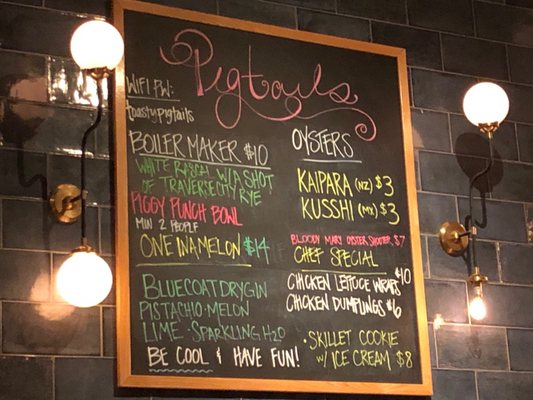 Pigtails
WIFI PW:
toastypigtails
BOILER MAKER $10
WHITE RASCAL W/A SHOT
OF TRAVERSE CITY RYE
PIGGY PUNCH BOWL
MIN 2 PEOPLE
ONE IN A MELON $14
BLUECOAT DRY GIN
PISTACHIO · MELON
LIME · SPARKLING H2O
BE COOL & HAVE FUN!
OYSTERS
KAIPARA (NZ) $3
KUSSHI (MX) $3
BLOODY MARY OYSTER SHOOTER $7
CHEF SPECIAL
CHICKEN LETTUCE WRAPS $10
CHICKEN DUMPLINGS $6
· SKILLET COOKIE
W/ ICE CREAM $8